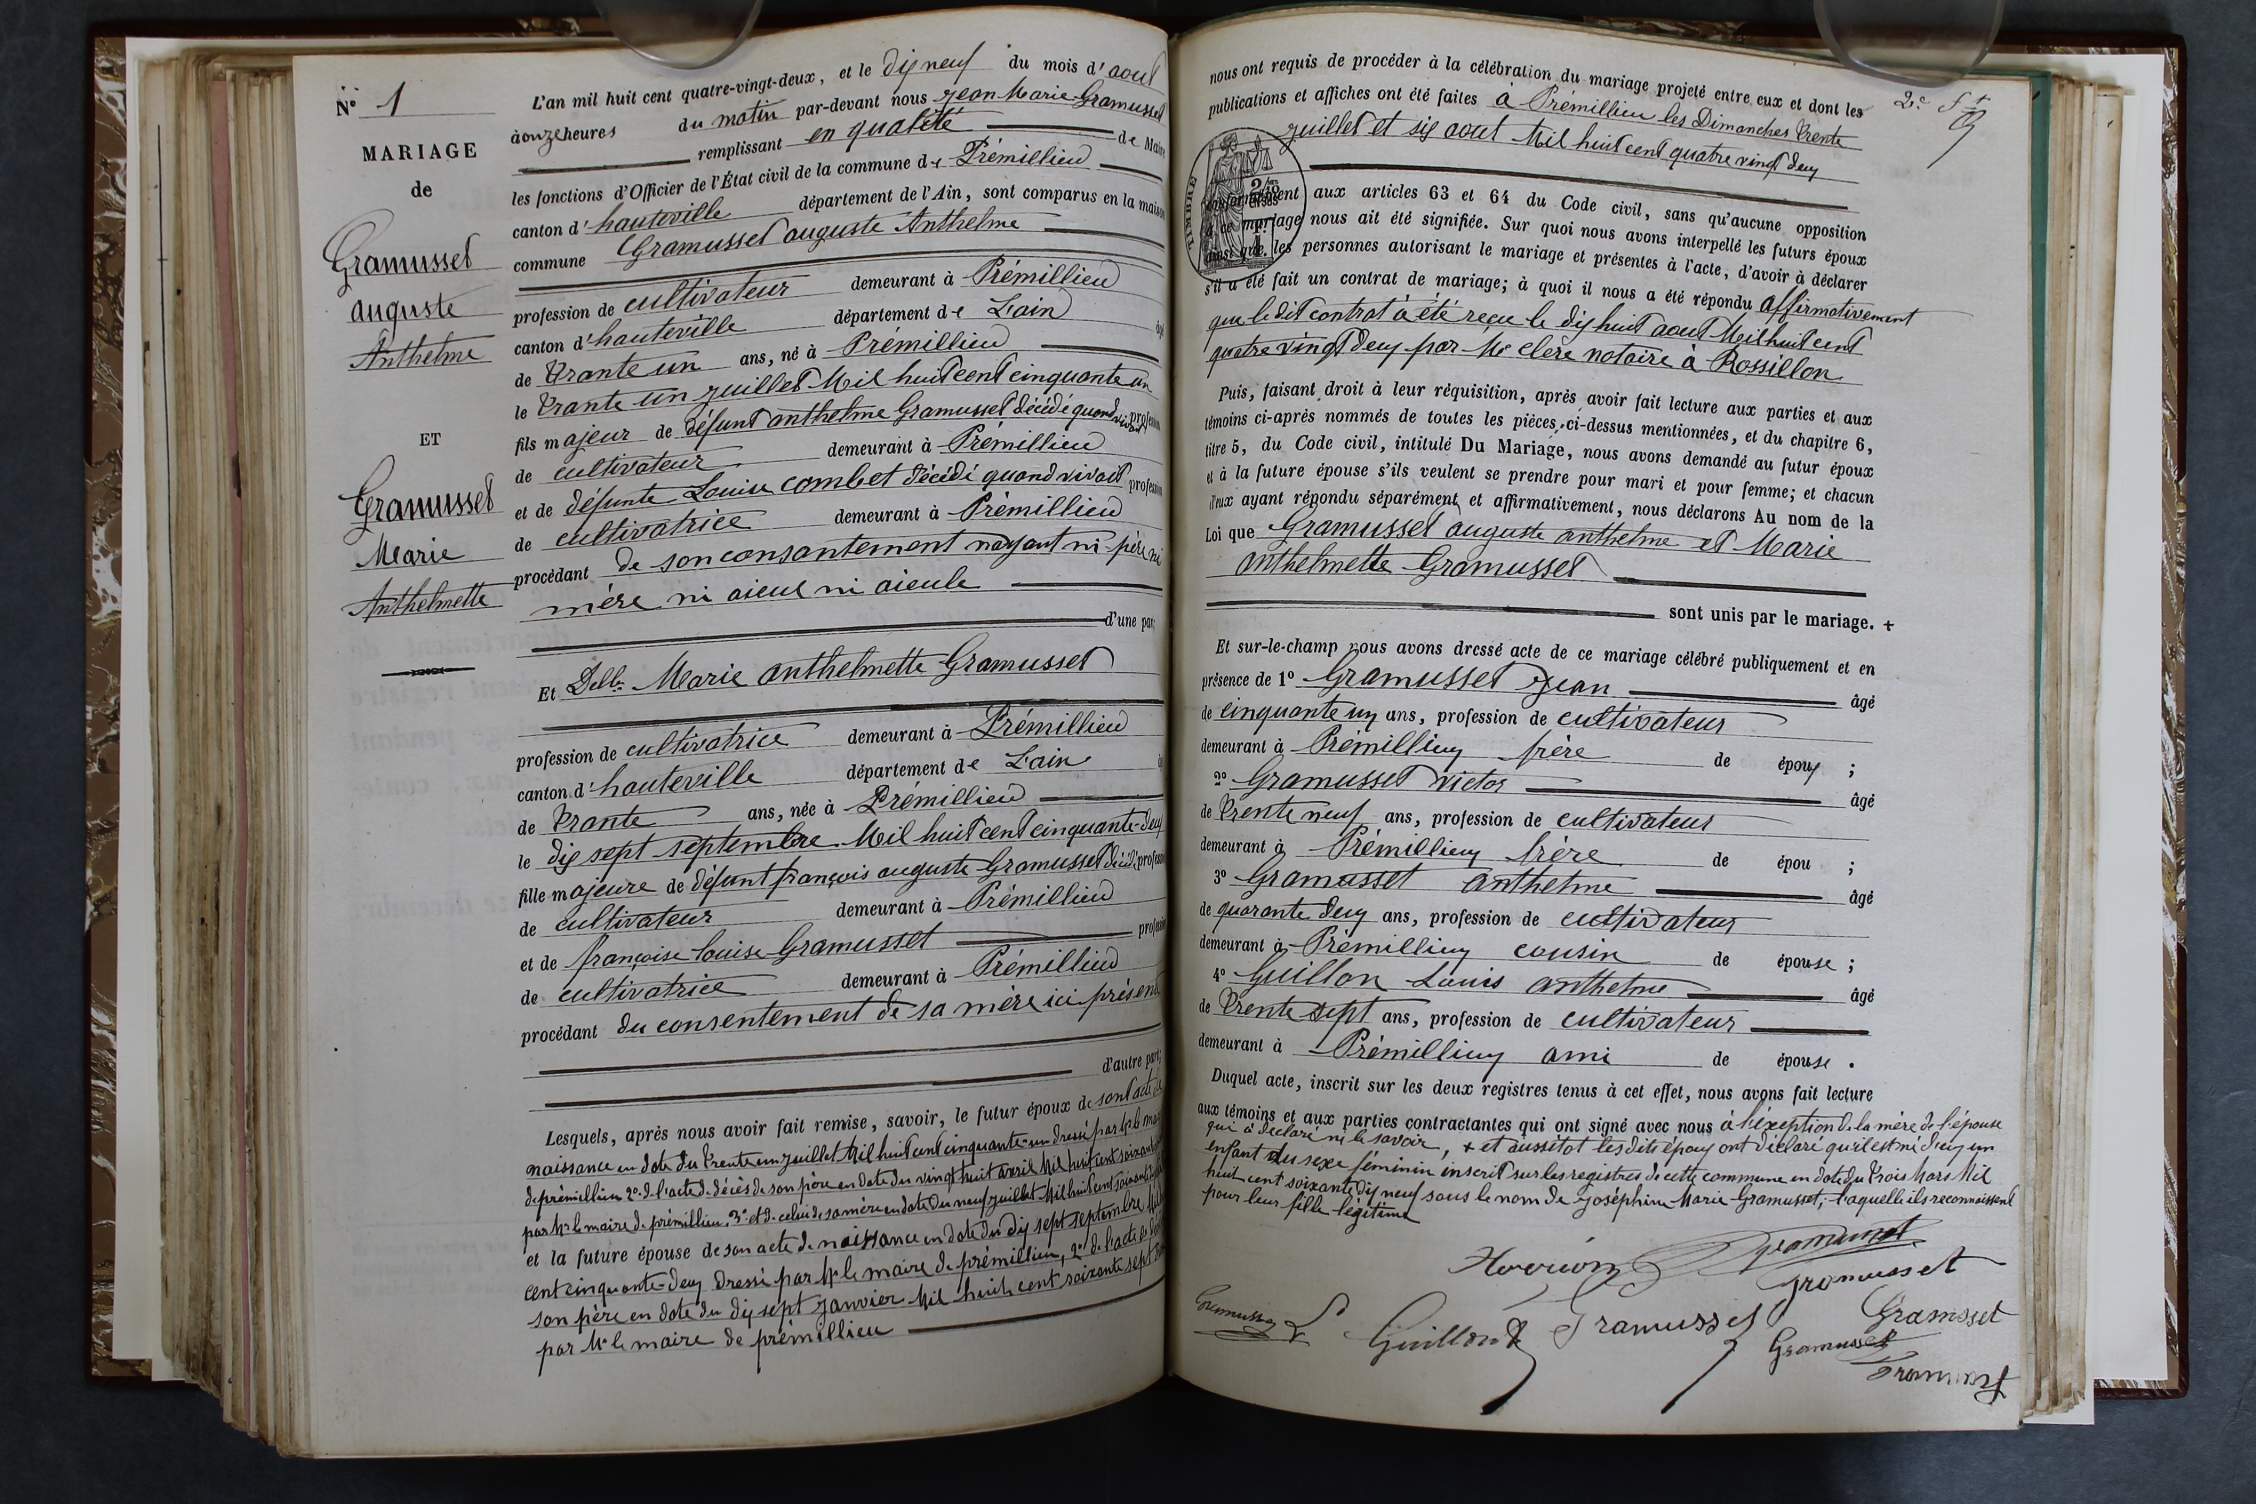 N° 1
MARIAGE
de
Gramusset
auguste
Anthelme
ET
Gramusset
Marie
Anthelmette
L'an mil huit cent quatre-vingt-deux, et le dix neuf du mois d'aout
à onze heures du matin par-devant nous Jean Marie Gramusset
remplissant en qualité de Maire
les fonctions d'Officier de l'État civil de la commune de Prémillieu
canton d'hauteville département de l'Ain, sont comparus en la maison
commune Gramusset auguste Anthelme
profession de cultivateur demeurant à Prémillieu
canton d'hauteville département de L'ain âgé
de trante un ans, né à Prémillieu
le trante un juillet Mil huit cent cinquante un
fils majeur de défunt anthelme Gramusset décédé quand vivait profession
de cultivateur demeurant à Prémillieu
et de défunte Louise combet décédé quand vivait profession
de cultivatrice demeurant à Prémillieu
procédant de son consantement nayant ni père ni
mère ni aieul ni aieule
d'une part;
Et Delle Marie anthelmette Gramusset
profession de cultivatrice demeurant à Prémillieu
canton d'hauteville département de L'ain
de trante ans, née à Prémillieu
le dix sept septembre Mil huit cent cinquante-deux
fille majeure de défunt françois auguste Gramusset décédé profession
de cultivateur demeurant à Prémillieu
et de françoise Louise Gramusset profession
de cultivatrice demeurant à Prémillieu
procédant du consentement de sa mère ici présente
d'autre part;
Lesquels, après nous avoir fait remise, savoir, le futur époux de sont acte de
naissance en date du trente un juillet Mil huit cent cinquante-un dressé par Mr le maire
de prémillieu 2° de l'acte de décès de son père en date du vingt huit avril Mil huit cent soixante
par Mr le maire de prémillieu, 3° et de celui de sa mère en date du neuf juillet Mil huit cent soixante
et la future épouse de son acte de naissance en date du dix sept septembre Mil huit
cent cinquante-deux dressé par Mr le maire de prémillieu, 2° de l'acte de décès
son père en date du dix sept janvier Mil huit cent soixante sept
par Mr le maire de prémillieu
nous ont requis de procéder à la célébration du mariage projeté entre eux et dont les
publications et affiches ont été faites à Prémillieu les Dimanches trente
juillet et six aout Mil huit cent quatre vingt deux
TIMBRE
conformément aux articles 63 et 64 du Code civil, sans qu'aucune opposition
à ce mariage nous ait été signifiée. Sur quoi nous avons interpellé les futurs époux
ainsi que les personnes autorisant le mariage et présentes à l'acte, d'avoir à déclarer
s'il a été fait un contrat de mariage; à quoi il nous a été répondu affirmativement
que le dit contrat à été reçu le dix huit aout Mil huit cent
quatre vingt deux par Me clerc notaire à Rossillon
Puis, faisant droit à leur réquisition, après avoir fait lecture aux parties et aux
témoins ci-après nommés de toutes les pièces ci-dessus mentionnées, et du chapitre 6,
titre 5, du Code civil, intitulé Du Mariage, nous avons demandé au futur époux
et à la future épouse s'ils veulent se prendre pour mari et pour femme; et chacun
d'eux ayant répondu séparément et affirmativement, nous déclarons Au nom de la
Loi que Gramusset auguste anthelme et Marie
anthelmette Gramusset
sont unis par le mariage. +
Et sur-le-champ nous avons dressé acte de ce mariage célébré publiquement et en
présence de 1° Gramusset Jean âgé
de cinquante un ans, profession de cultivateur
demeurant à Prémillieux frère de époux ;
2° Gramusset victor âgé
de trente neuf ans, profession de cultivateur
demeurant à Prémillieux frère de épou ;
3° Gramusset anthelme âgé
de quarante deux ans, profession de cultivateur
demeurant à Prémillieux cousin de épouse ;
4° Guillon Louis anthelme âgé
de trente sept ans, profession de cultivateur
demeurant à Prémillieux ami de épouse .
Duquel acte, inscrit sur les deux registres tenus à cet effet, nous avons fait lecture
aux témoins et aux parties contractantes qui ont signé avec nous à l'éxception de la mère de l'épouse
qui à déclaré ni le savoir, + et aussitot les dits époux ont déclaré qu'il est né d'eux un
enfant du sexe féminin inscrit sur les registres de cette commune en date du trois Mars Mil
huit cent soixante dix neuf sous le nom de Joséphine Marie Gramusset, laquelle ils reconnaissent
pour leur fille légitime
Gramusset
Gramusset
Guillon
Gramusset
Gramsset
Gramusset